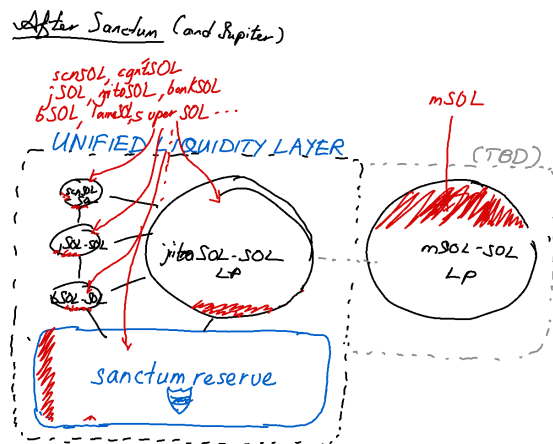 After Sanctum (and Jupiter)
scnSOL, cgntSOL
jSOL, jitoSOL, bankSOL
bSOL, laineSOL, superSOL ...
mSOL
UNIFIED LIQUIDITY LAYER
(TBD)
scnSOL
jSOL-SOL
bSOL-SOL
jitoSOL-SOL
LP
mSOL-SOL
LP
sanctum reserve